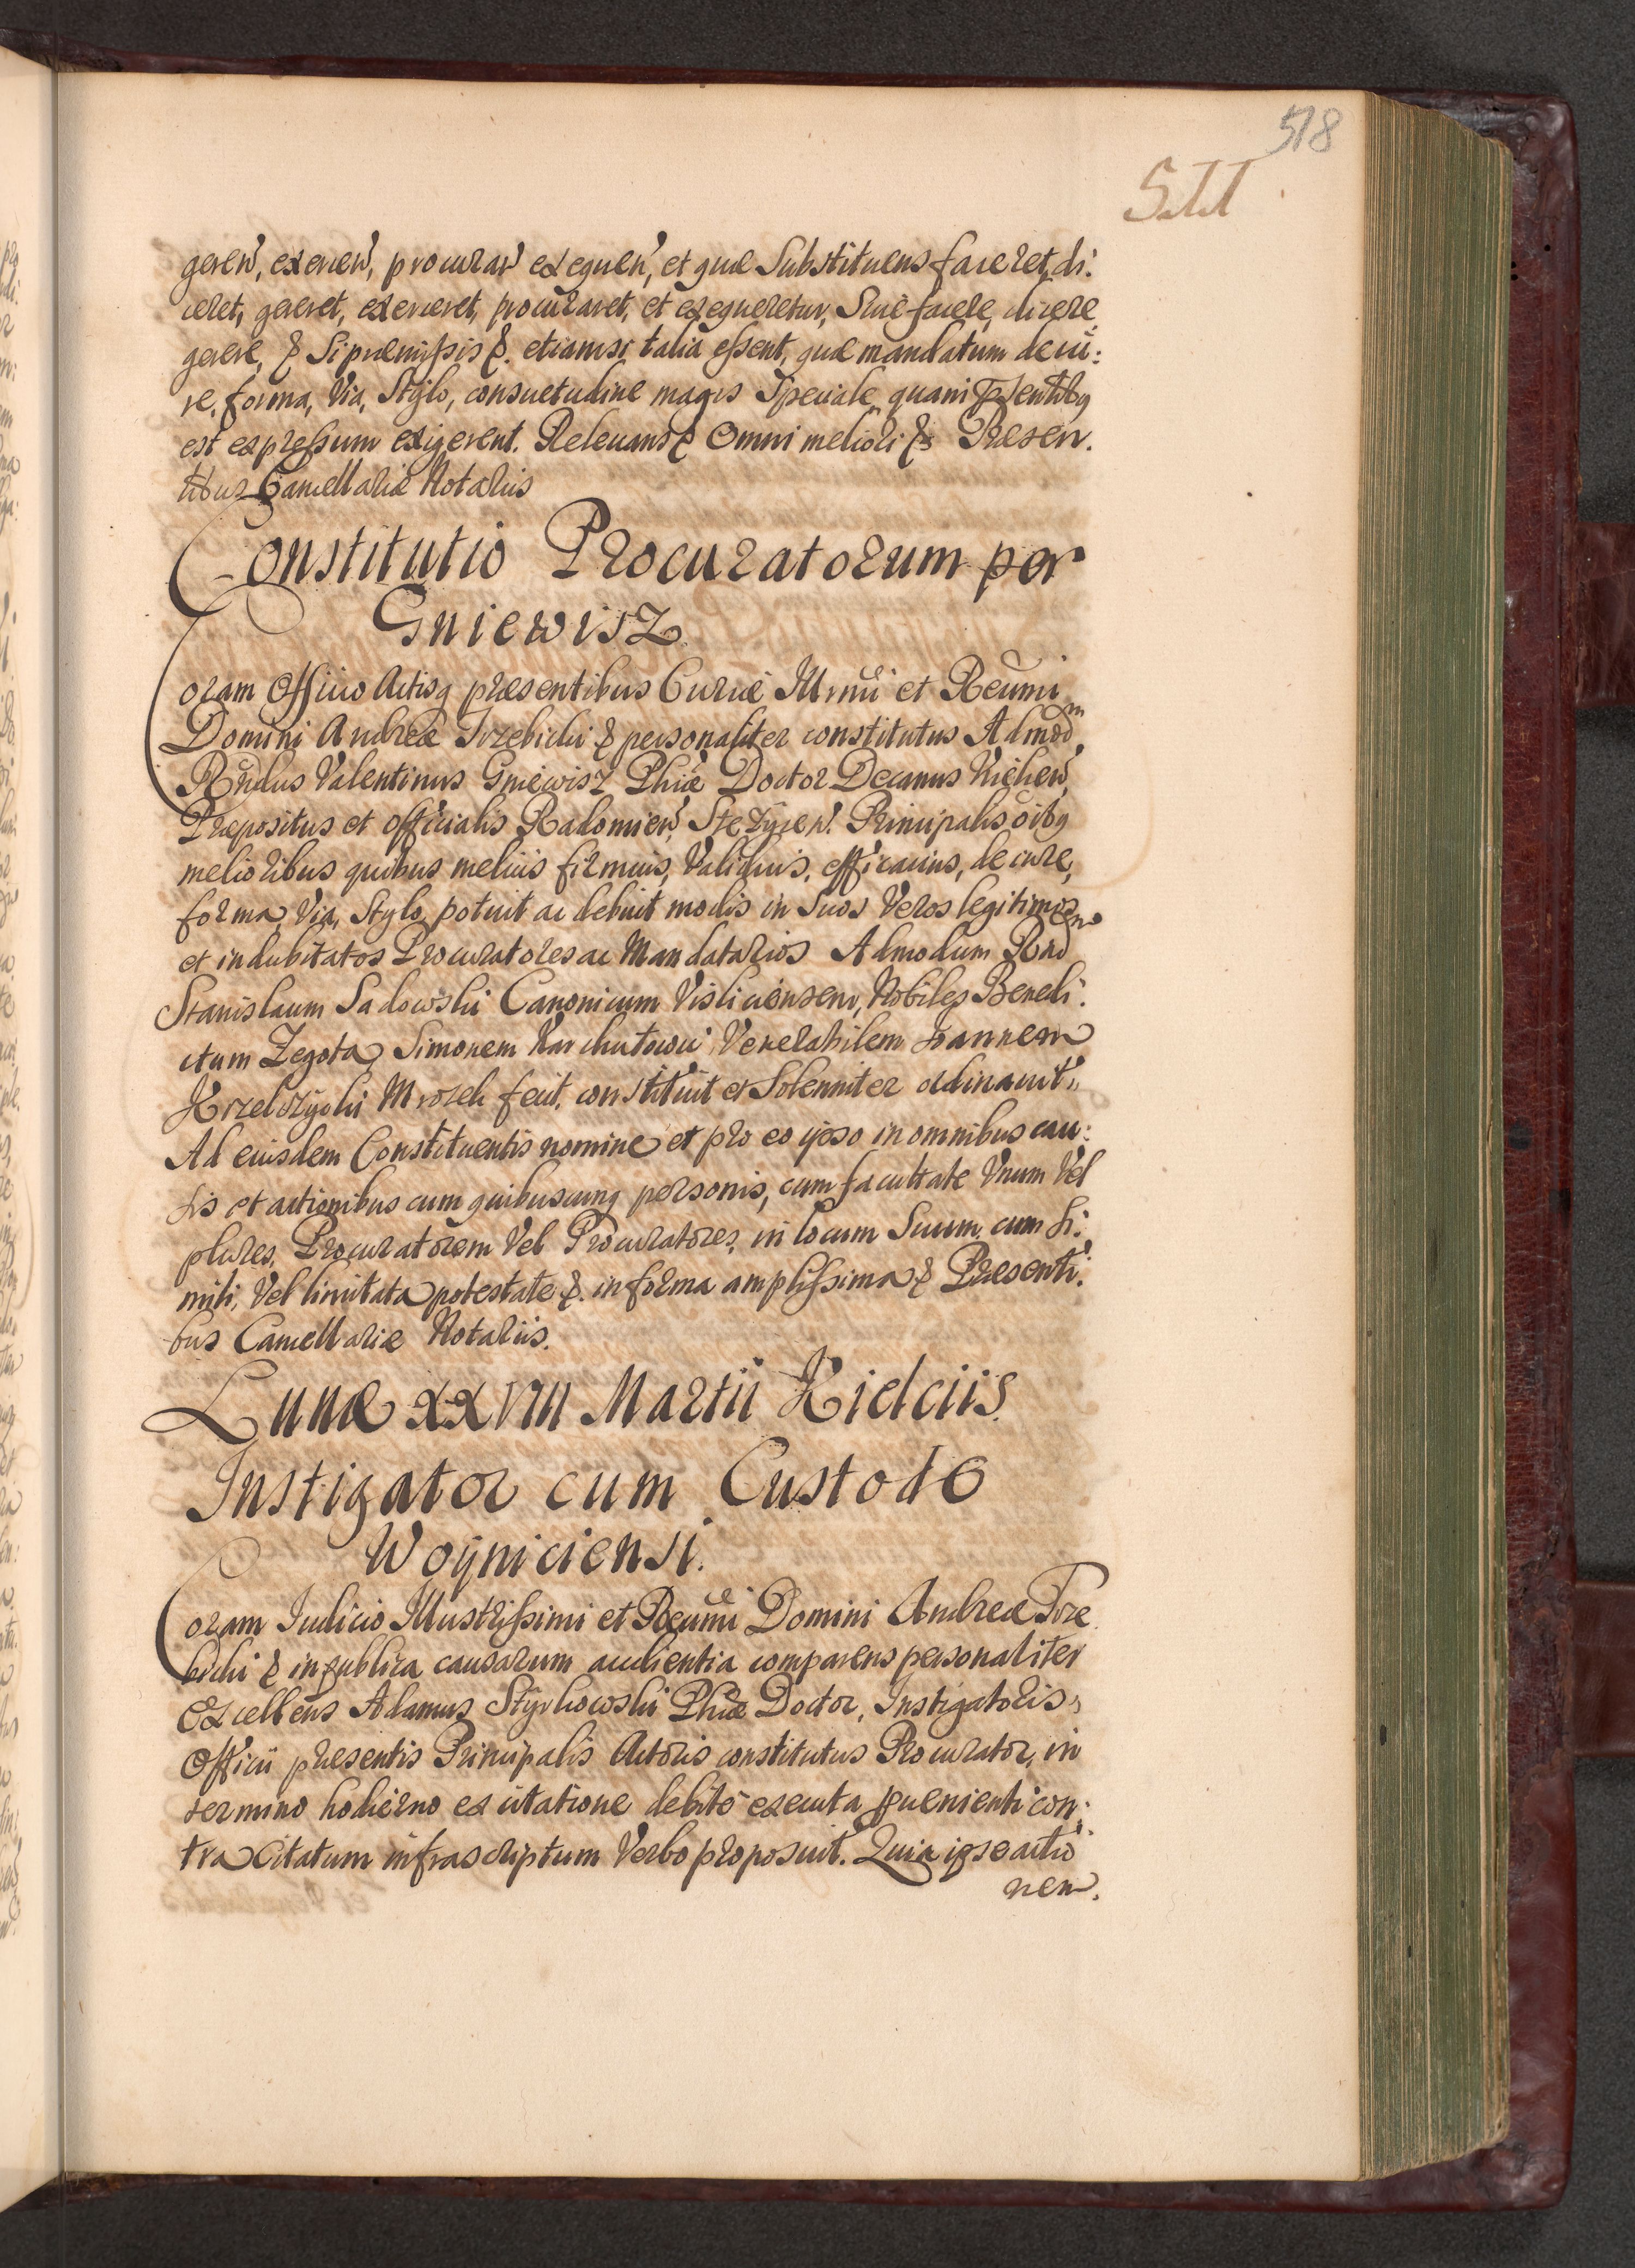 518
511
geren, exercen, procuran exequen, et quæ Substituens faceret, di:
ceret, gereret, exerceret, procuraret, et exequeretur, Siuè facere, dicere
gerere, & Si præmissis &. etiamsi talia essent, quæ mandatum de iu:
re, forma, Via, Stÿlo, consuetudine magis Speciale quam Præsentibq
est expressum exigerent. Releuans & Omni meliori & Præsen.
tibus Cancellariæ Notariis
Constitutio Procuratorum per
Gniewisz
Coram Officio Actisq præsentibus Curiæ Illrmi et Reumi
Domini Andreæ Trzebicki & personaliter constitutus Admodm
Rndus Valentinus Gniewisz Phiæ Doctor Decanus Kielcen,
Præpositus et Officialis Radomien, Stezÿcen. Principalis oibq
melioribus quibus melius firmius, Validius, efficacius, de iure,
forma, Via, Stylo, potuit ac debuit modis in Suos Veros legitimos
et indubitatos Procuratores ac Mandatarios Admodum Rndem
Stanislaum Sadowski Canonicum Visliciensem, Nobiles Benedi:
ctum Zegota, Simonem Karchutowic Venerabilem Joannem
Krzelczÿcki Mrozek fecit, constituit et Solenniter ordinauit,
Ad eiusdem Constituentis nomine et pro eo ipso in omnibus cau:
sis et actionibus cum quibuscunq personis, cum facultate Vnum Vel
plures, Procuratorem Vel Procuratores, in locum Suum, cum Si:
mili, Vel limitata potestate &. in forma amplissima & Præsenti:
bus Cancellariæ Notariis.
Lunæ XXVIII Martii Kielciis
Instigator cum Custode
Woÿniciensi.
Coram Iudicio Illustrissimi et Reumi Domini Andreæ Trze
bicki & in publica causarum audientia comparens personaliter
Excellens Adamus Stÿrkowski Phiæ Doctor, Instigatoris
Officii præsentis Principalis Actoris constitutus Procurator, in
termino hodierno ex citatione debitè executa pueniente con:
tra Citatum infrascriptum Verbo proposuit. Quia ipse actio
nem.